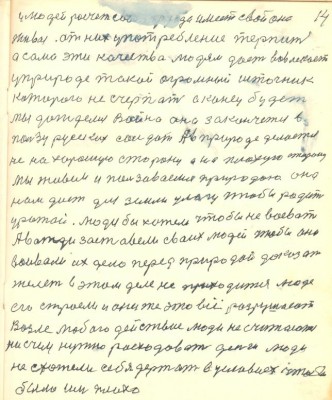 14
людей
живы от них употребление терпит
а сама эти качества людям дает вовлекает
у природе такой огромный источник
которого не счерпат а конец будет
мы дождемся война она закончится в
ползу русских солдат А в природе делается
не на хорошую сторону а на плохую сторону
мы живем и ползаваемся природою она
нам дает для земли улагу чтобы родить
урожай. люди бы хотели чтобы не воевать
А вожди заставели своих людей чтобы оне
воевали их дело перед природой
в этом деле не люде
его строели и оне же это всё разрушают
возле любого действие люди не считают
ни счем нужно расходовать денги люди
не схотели себя держат в условиях чтобы
было им плохо